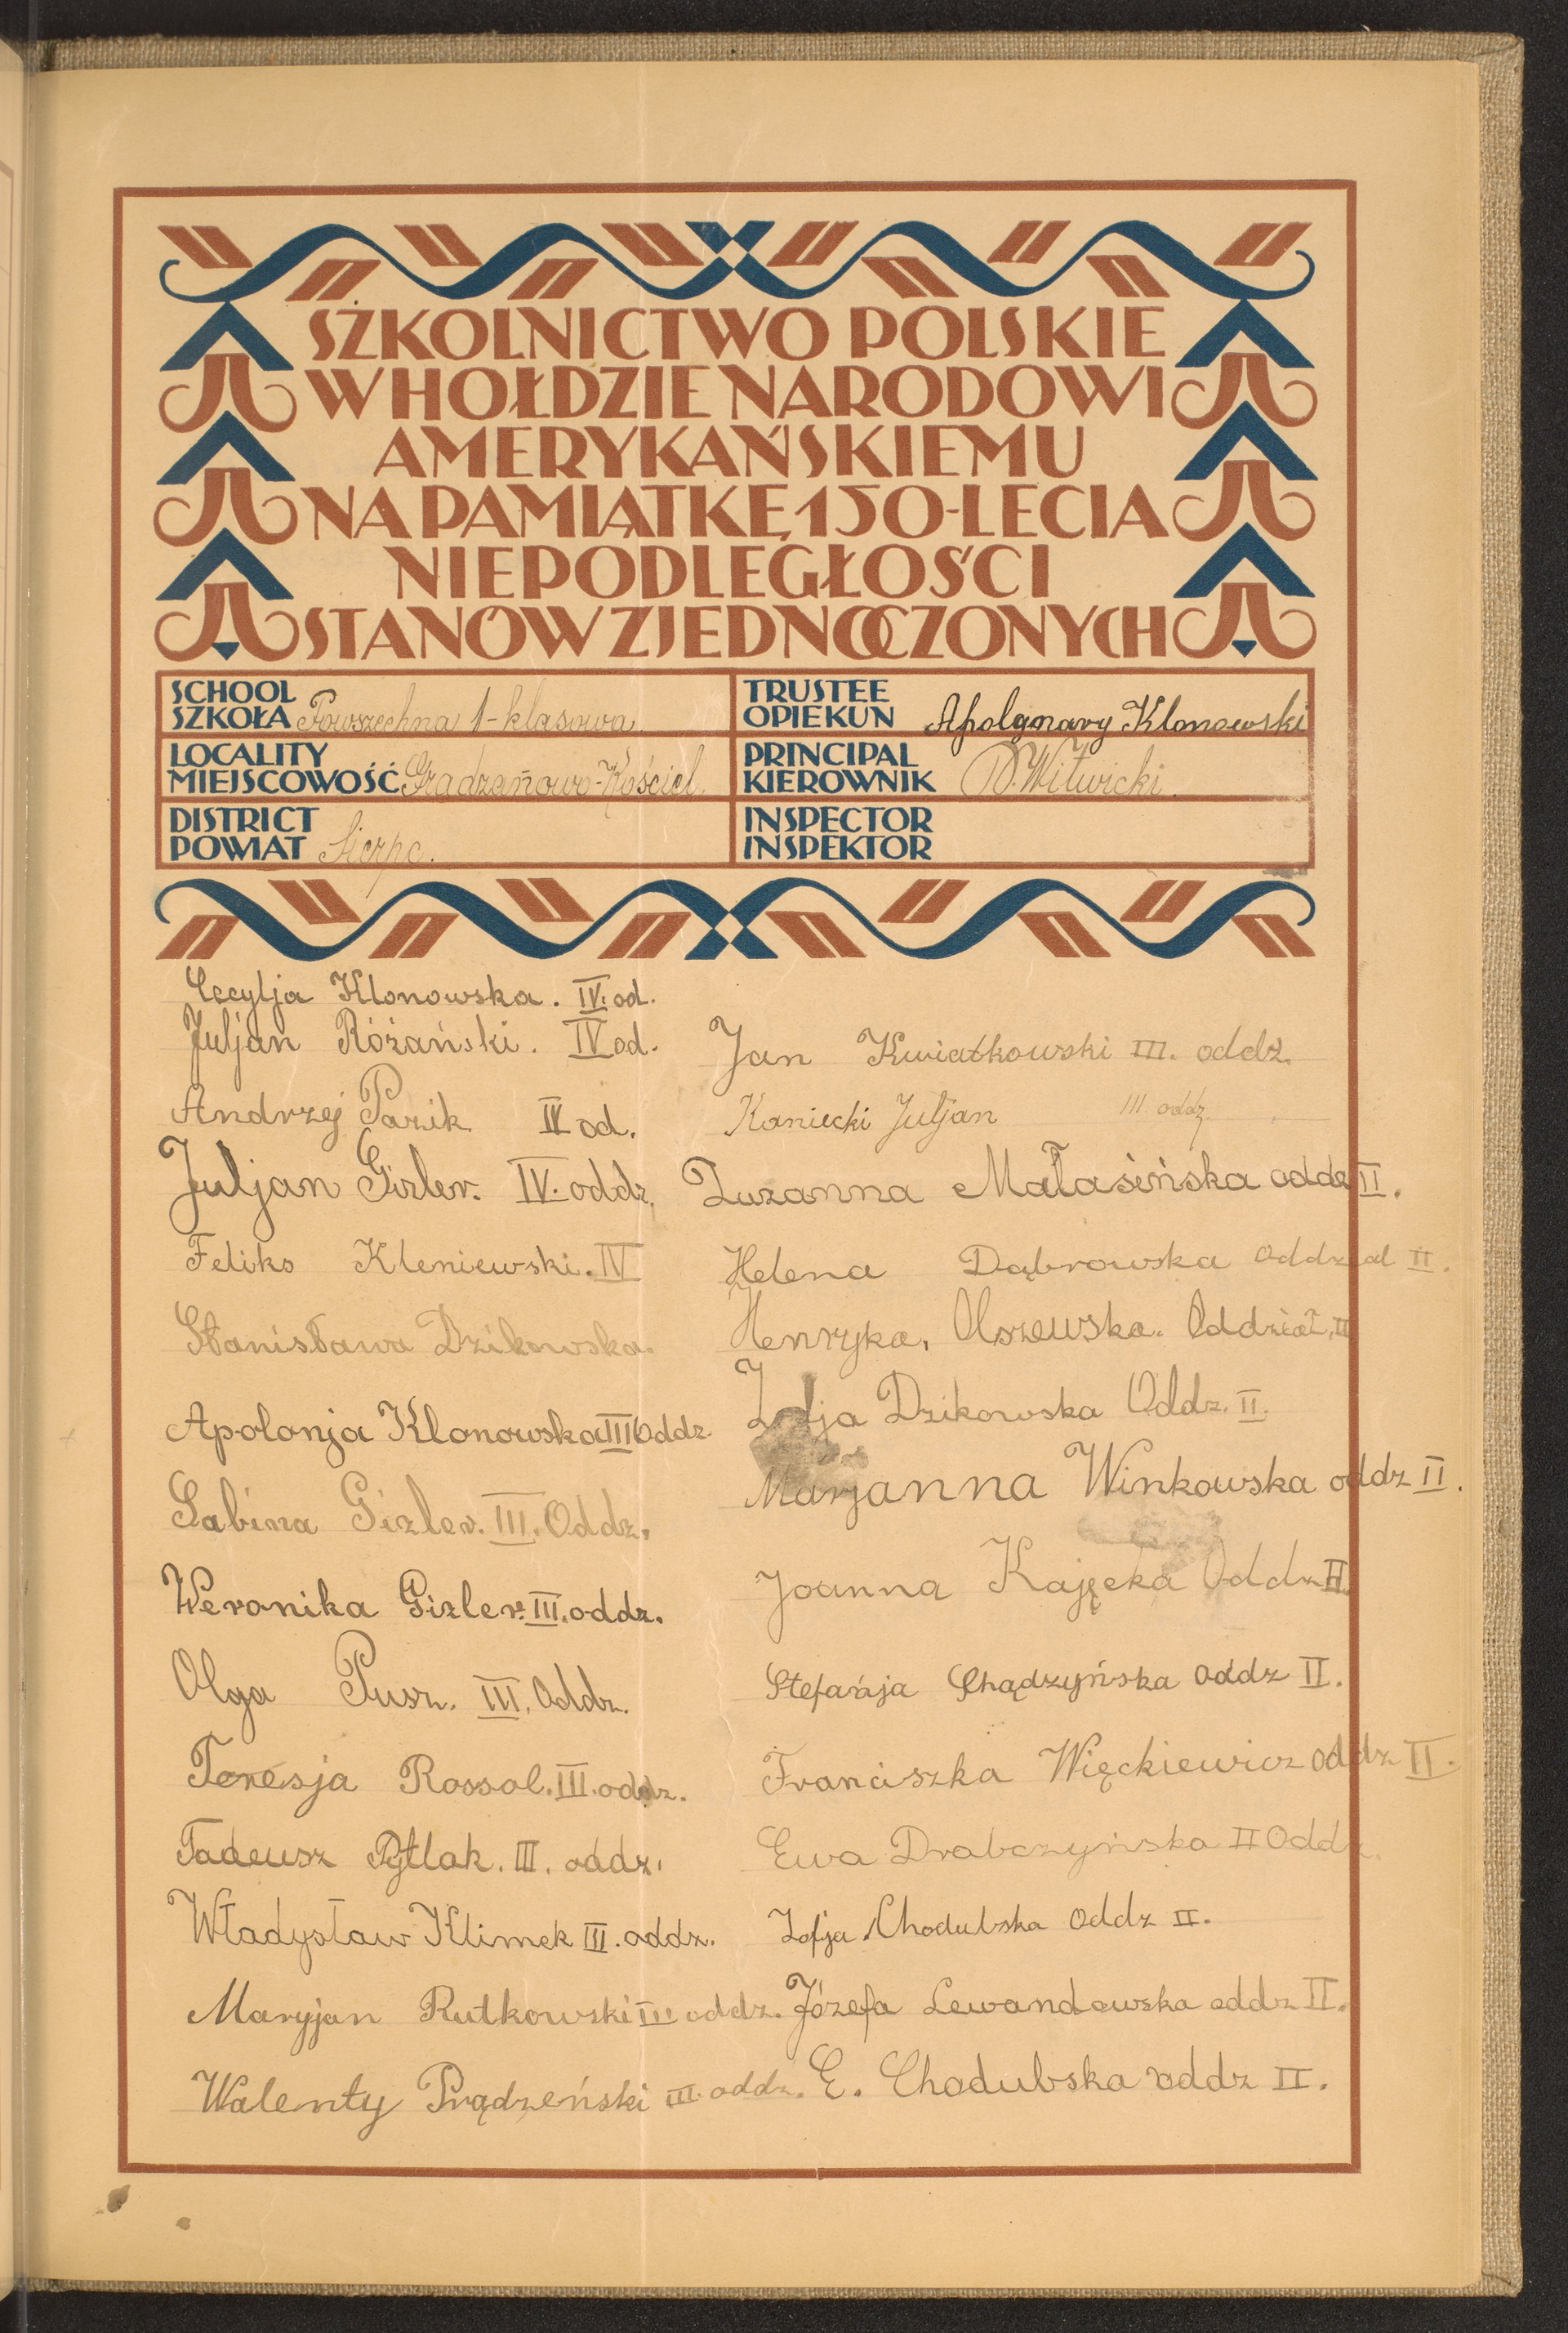 SZKOLNICTWO POLSKIE
W HOŁDZIE NARODOWI
AMERYKAŃSKIEMU
NA PAMIĄTKĘ 150-LECIA
NIEPODLEGŁOŚCI
STANÓW ZJEDNOCZONYCH
SCHOOL
SZKOŁA Powszechna 1-klasowa
LOCALITY
MIEJSCOWOŚĆ Gradzanowo-Kościel.
DISTRICT
POWIAT Sierpc.
TRUSTEE
OPIEKUN Apolgnary Klonowski
PRINCIPAL
KIEROWNIK Witwicki
INSPECTOR
INSPEKTOR
Cecylja Klonowska. IV. od.
Juljan Różański. IV od.
Andrzej Pazik IV od.
Juljan Gizler. IV. oddz.
Feliks Kleniewski. IV
Stanisława Dzikowska.
Apolonja Klonowska III Oddz.
Sabina Gizler. III. Oddz.
Weronika Gizler. III. oddz.
Olga Pusz. III. Oddz.
Teresja Rossol. III. oddz.
Tadeusz Pytlak. III. oddz.
Władysław Klimek III. oddz.
Maryjan Rutkowski III oddz.
Walenty Prądzeński III. oddz.
Jan Kwiatkowski III. oddz.
Kaniecki Juljan III. oddz.
Zuzanna Małasińska oddz II.
Helena Dąbrowska Oddział II.
Henryka. Olszewska. Oddział. II
Zofja Dzikowska Oddz. II.
Marjanna Winkowska oddz II.
Joanna Kajęcka Oddz II
Stefańja Chądzyńska Oddz II.
Franciszka Więckiewicz oddz II.
Ewa Drabczyńska II Oddz.
Zofja Chodubska Oddz II.
Józefa Lewandowska oddz II.
E. Chodubska oddz II.